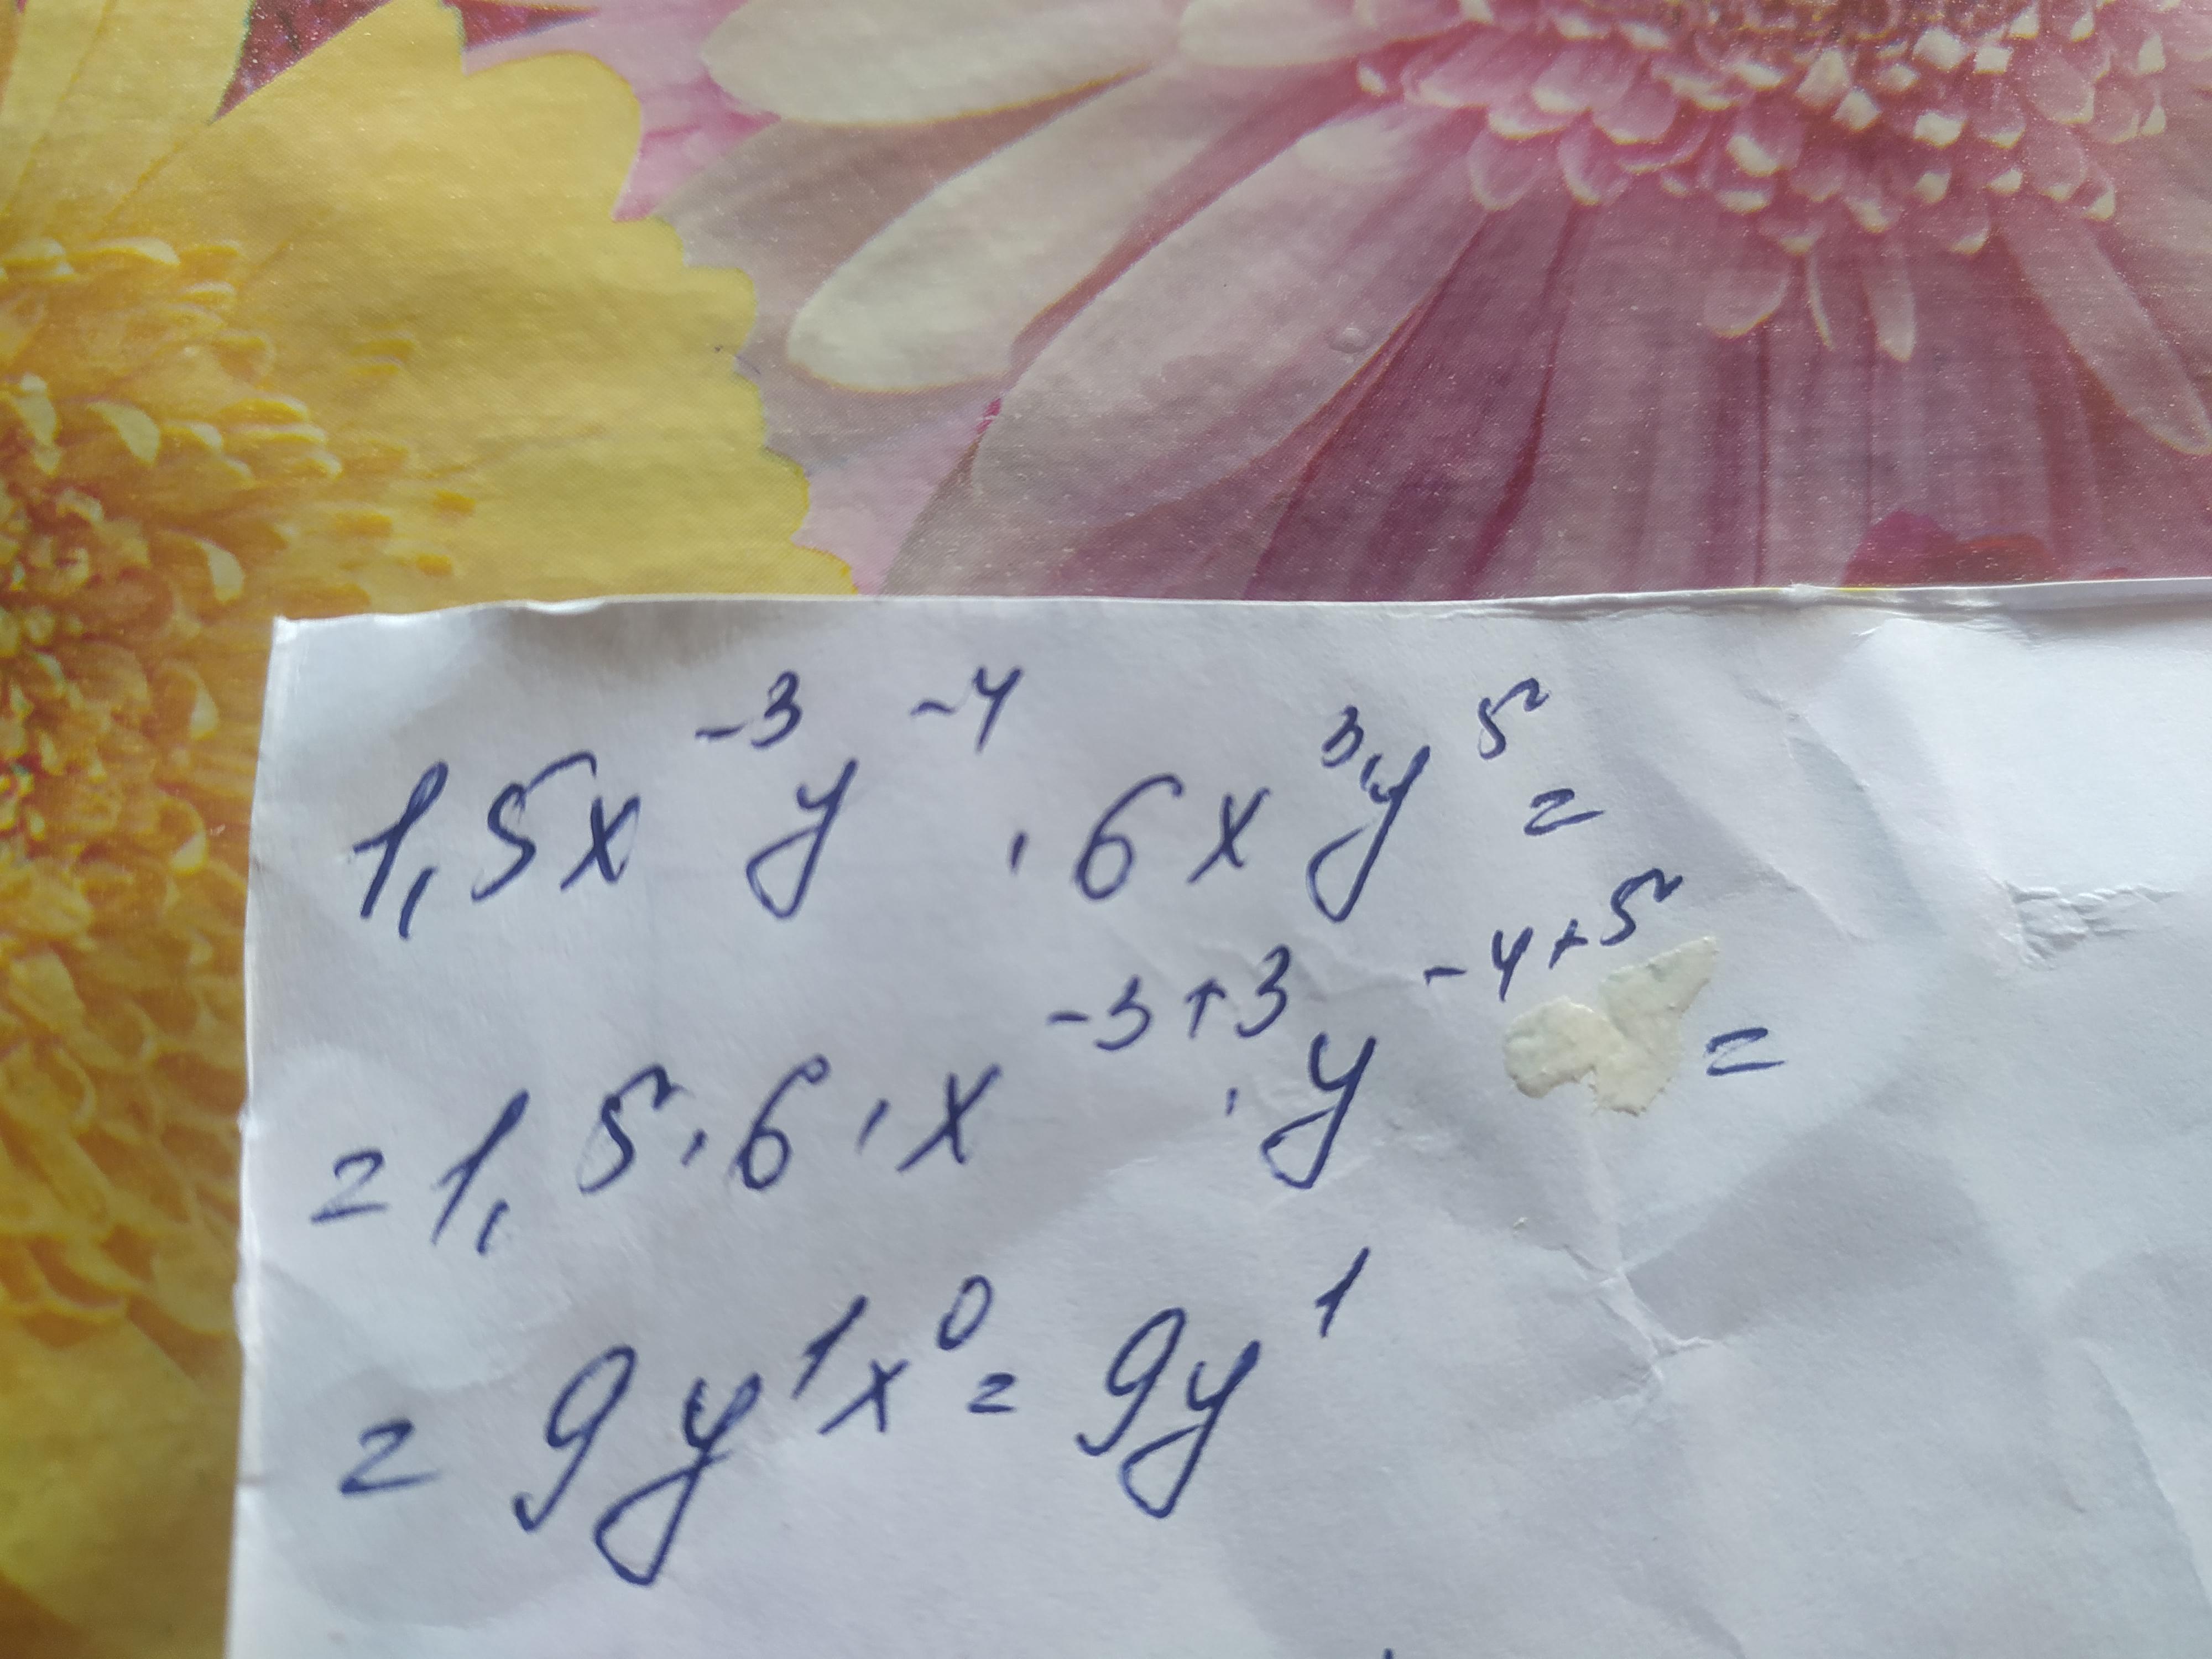 1,5x⁻³y⁻⁴ · 6x³y⁵ =
= 1,5 · 6 · x⁻³⁺³ · y⁻⁴⁺⁵ =
= 9y¹x⁰ = 9y¹